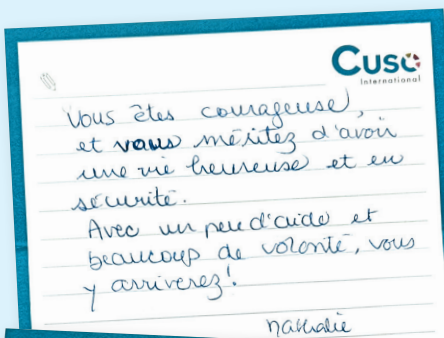 Cuso
International
Vous êtes courageuse,
et vous méritez d'avoir
une vie heureuse et en
sécurité.
Avec un peu d'aide et
beaucoup de volonté, vous
y arriverez!
Nathalie